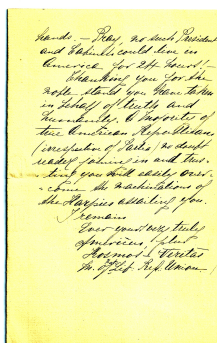 hands — Pray, no such President
and Cabinet could live in
America for 24 hours! —
Thanking you for the
noble stand you have taken
in behalf of truth and
humanity. A majority of
true American Republicans
(irrespective of Party) no doubt
ready joining in and trus-
ting you will easily over-
come the machinations of
the Harpies assailing you.
I remain
Ever yours very truly
plus
Kosmos & Veritas
M. of Rep. Union